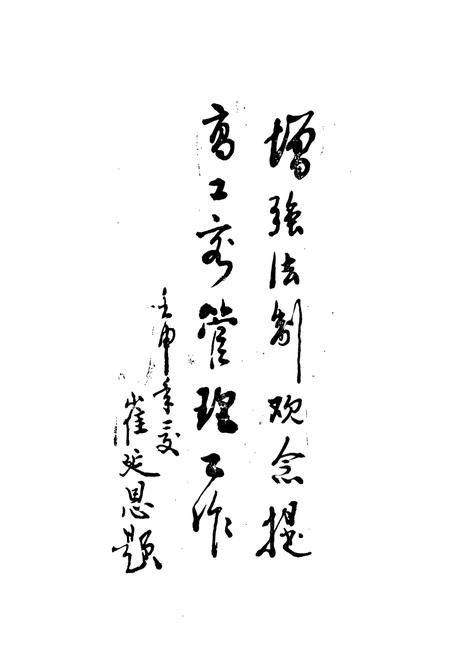 增强法制观念提
高工商管理工作
壬申年夏
崔延恩题